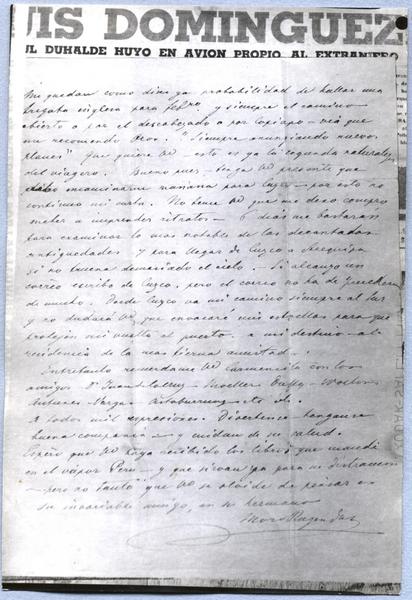 UIS DOMINGUEZ
UL DUHALDE HUYO EN AVION PROPIO AL EXTRANJERO
Me quedan como dias ya probabilidad de hallar una
fragata inglesa para y siempre el camino
abierto o por el descabezado o por Copiapo - via que
me recomendo Ocos. "Siempre anunciando nuevos
planes" que quiere Vd - esto es ya la segunda naturaleza
del viagero. Bueno pues - tenga Vd presente que
debo encaminarme mañana para Cuzco - por esto no
continuo mi carta. No tema Vd que me deso compro
meter a emprender retratos - 6 dias me bastaran
para examinar lo mas notable de las decantadas
antiguedades y para llegar de Cuzco a Arequipa
si no truena demasiado el cielo. Si alcanzo un
correo escribo de Cuzco, pero el correo no ha de
de mucho. Desde Cuzco va mi camino siempre al Sur
y no dudará Vd que invocaré mis estrellas para que
protejan mi vuelta al puerto - a mi destino - a la
residencia de la mas tierna amistad.
Entretanto recuerdame Vd Carmencita con los
amigos Dn Juan de la Cruz - Moeller
Vargas - Astaburuaga - etc. etc.
A todos mil expresiones. Diviertense - tenganse
buena compania - y cuidan de su salud.
Espero que Vd haya recibido los libros que mandé
en el vapor Peru - y que sirvan ya para su
- pero no tanto que Vd se olvide de pensar en
su invariable amigo, en su hermano
Moro Rugendas